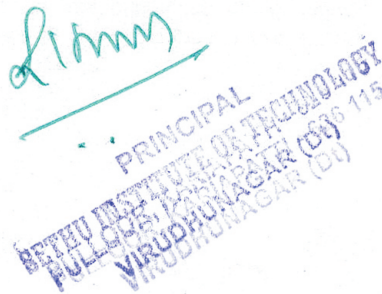 PRINCIPAL
SETHU INSTITUTE OF TECHNOLOGY
PULLOOR, KARIAPATTI - 626 115
VIRUDHUNAGAR (Dt)